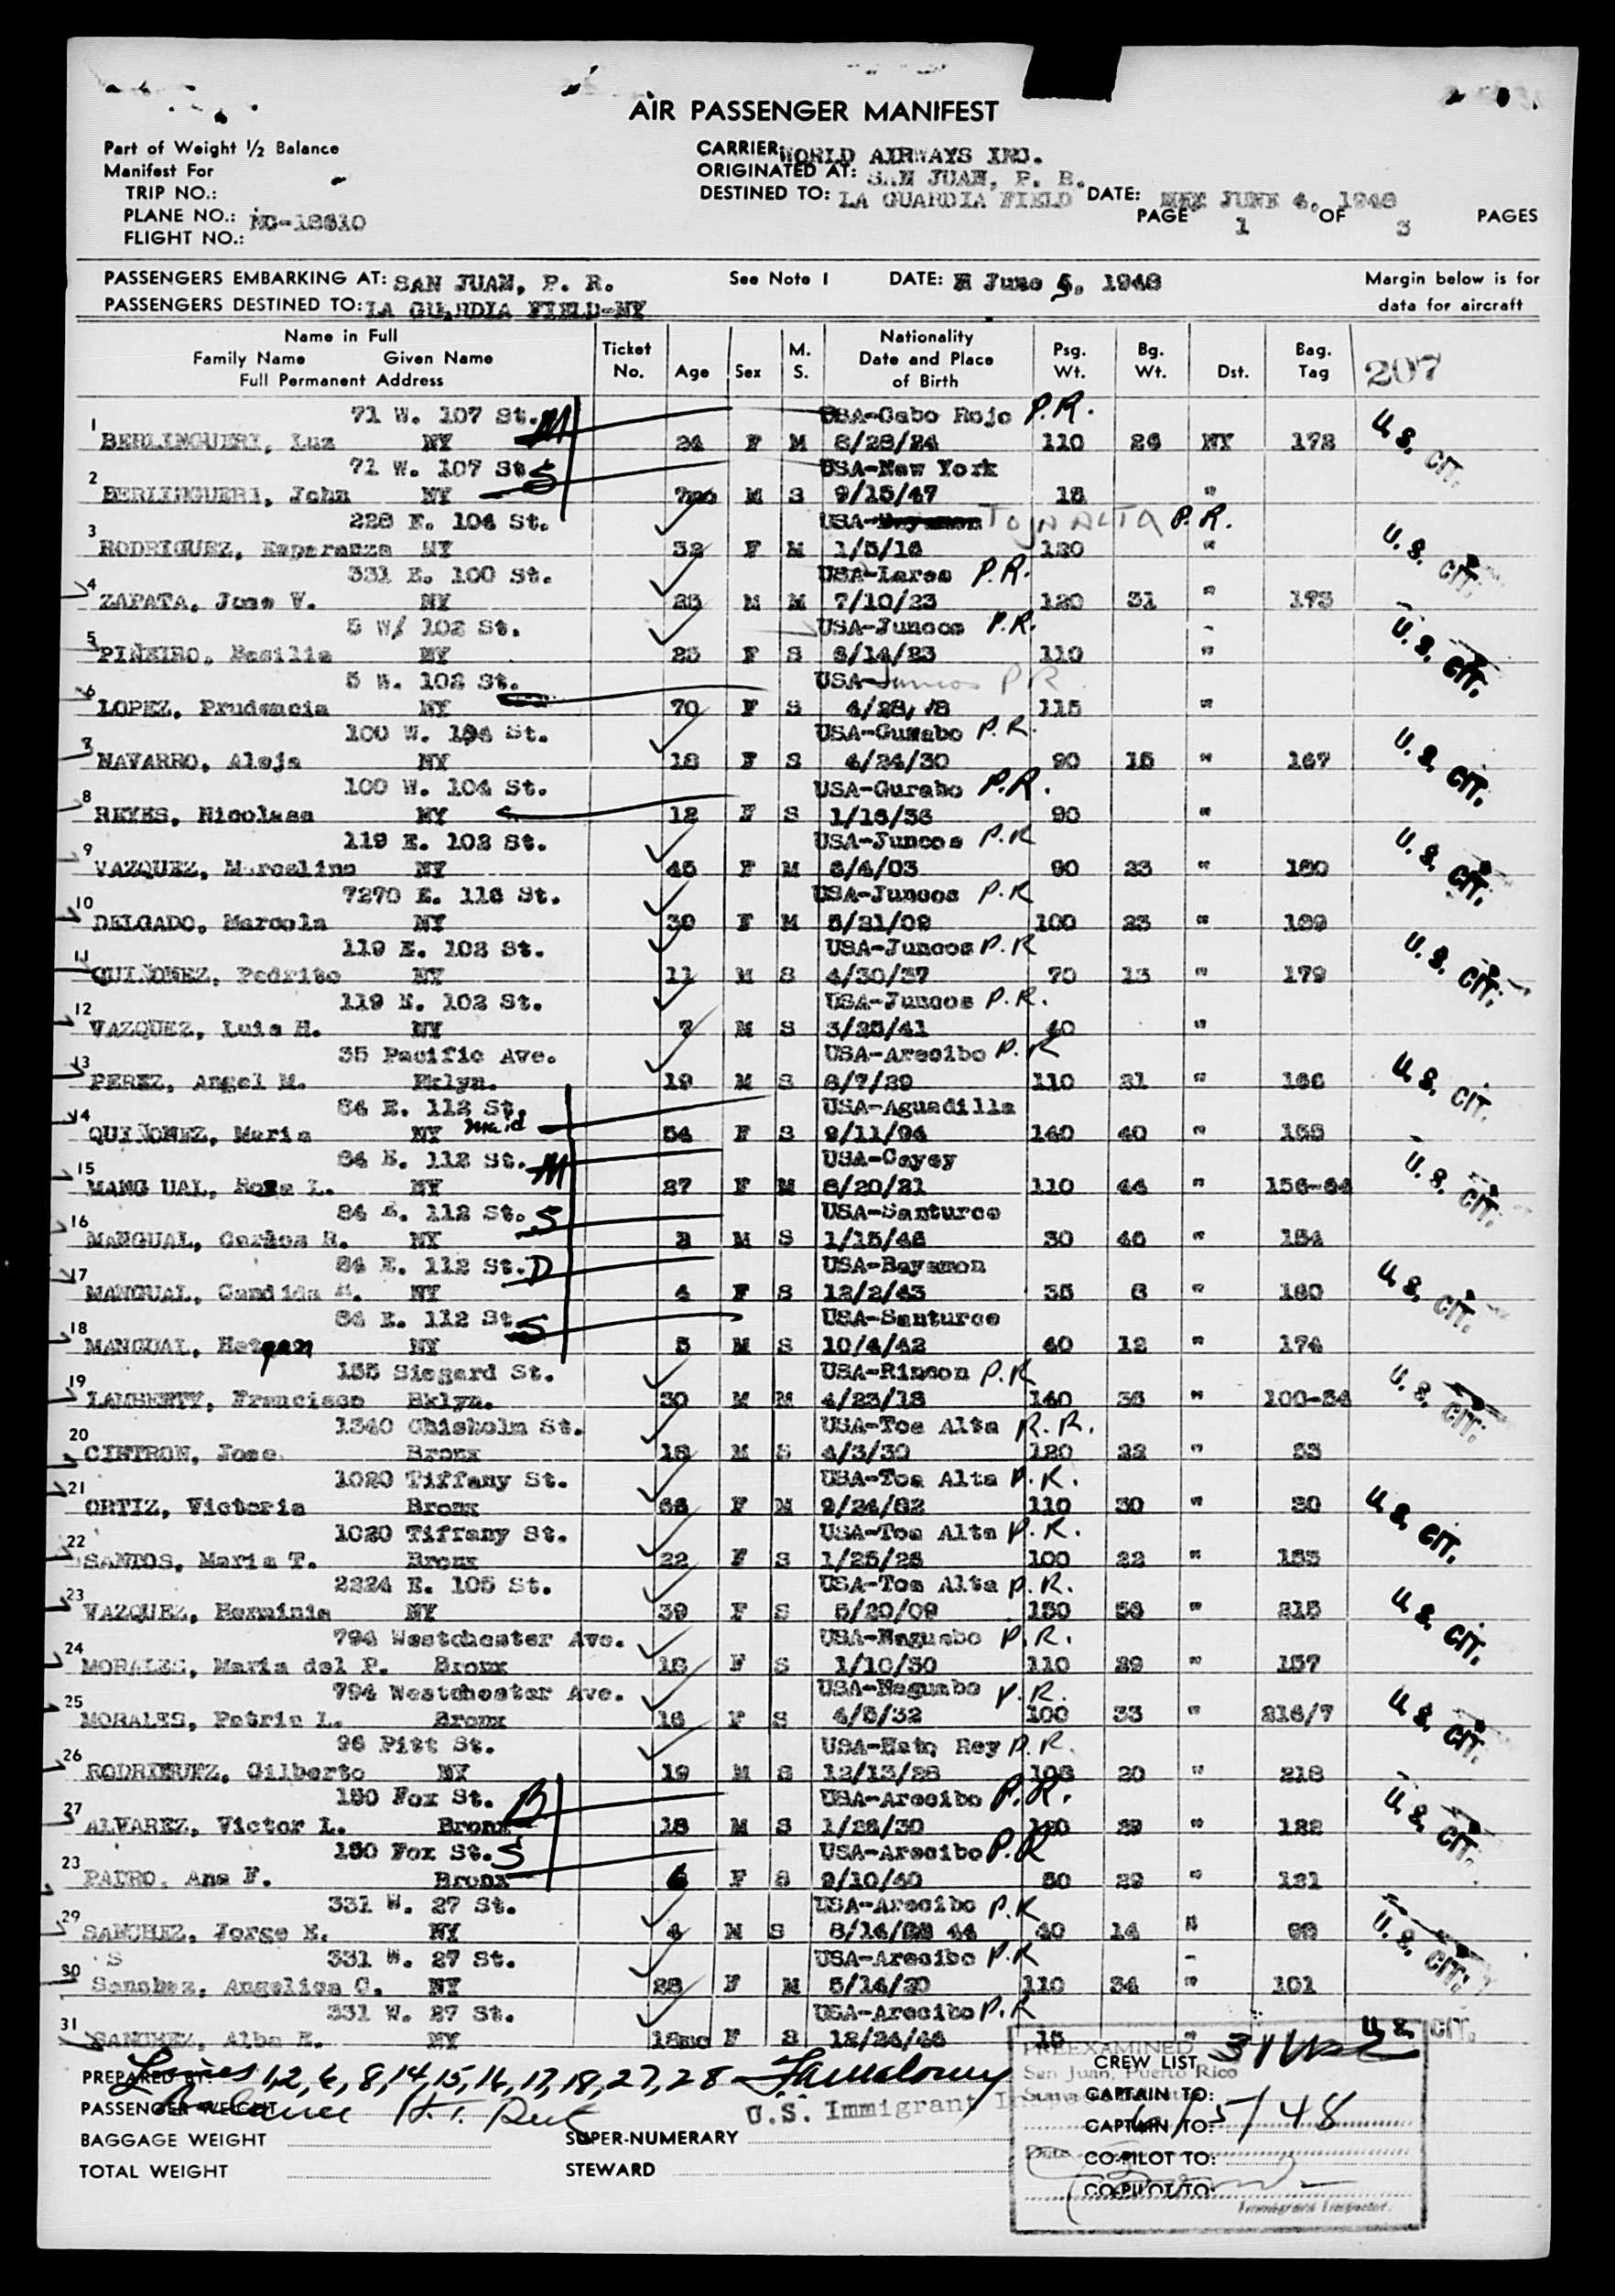 AIR PASSENGER MANIFEST
Part of Weight ½ Balance
Manifest For
TRIP NO.:
PLANE NO.: NC-18610
FLIGHT NO.:
CARRIER: WORLD AIRWAYS INC.
ORIGINATED AT: SAN JUAN, P. R.
DESTINED TO: LA GUARDIA FIELD DATE: JUNE 4, 1948
PAGE 1 OF 3 PAGES
PASSENGERS EMBARKING AT: SAN JUAN, P. R. See Note 1 DATE: June 5, 1948 Margin below is for
PASSENGERS DESTINED TO: LA GUARDIA FIELD-NY data for aircraft
Name in Full
Family Name Given Name
Full Permanent Address
Ticket No. Age Sex M. S. Nationality Date and Place of Birth Psg. Wt. Bg. Wt. Dst. Bag. Tag 207
71 W. 107 St. M USA-Cabo Rojo P.R.
1 BERLINGUERI, Luz NY 24 F M 8/28/24 110 26 NY 172 U. S. CIT.
71 W. 107 St. S USA-New York
2 BERLINGUERI, John NY 7mo M S 9/15/47 18 "
228 E. 104 St. USA- TOJA ALTA P.R.
3 RODRIGUEZ, Esperanza NY 32 F M 1/5/16 120 " U. S. CIT.
331 E. 100 St. USA-Lares P.R.
4 ZAPATA, Jose V. NY 25 M M 7/10/23 120 31 " 173
5 W/ 102 St. USA-Juncos P.R.
5 PIÑEIRO, Basilia NY 25 F S 6/14/23 110 " U. S. CIT.
5 W. 102 St. USA-Juncos P R
6 LOPEZ, Prudencia NY 70 F S 4/28/78 115 "
100 W. 104 St. USA-Gurabo P.R.
7 NAVARRO, Aleja NY 18 F S 4/24/30 90 15 " 167 U. S. CIT.
100 W. 104 St. USA-Gurabo P.R.
8 REYES, Nicolasa NY 12 F S 1/16/36 90 "
119 E. 102 St. USA-Juncos P.R
9 VAZQUEZ, Marcelino NY 45 F M 6/4/03 90 23 " 180 U. S. CIT.
7270 E. 116 St. USA-Juncos P.R
10 DELGADO, Marcola NY 39 F M 5/21/09 100 23 " 169
119 E. 102 St. USA-Juncos P.R
11 QUIÑONEZ, Pedrito NY 11 M S 4/30/37 70 13 " 179 U. S. CIT.
119 E. 102 St. USA-Juncos P.R.
12 VAZQUEZ, Luis H. NY 7 M S 3/25/41 40 "
35 Pacific Ave. USA-Arecibo P.R
13 PEREZ, Angel M. Bklyn. 19 M S 6/7/29 110 21 " 166 U. S. CIT.
84 E. 112 St. USA-Aguadilla
14 QUIÑONEZ, Maria NY maid 54 F S 9/11/94 140 40 " 155
84 E. 112 St. M USA-Cayey
15 MANGUAL, Rosa L. NY 27 F M 8/20/21 110 44 " 156-64 U. S. CIT.
84 E. 112 St. S USA-Santurce
16 MANGUAL, Carlos R. NY 2 M S 1/15/46 30 46 " 154
84 E. 112 St. D USA-Bayamon
17 MANGUAL, Candida M. NY 4 F S 12/2/43 35 6 " 160 U. S. CIT.
84 E. 112 St. S USA-Santurce
18 MANGUAL, NY 5 M S 10/4/42 40 12 " 174
155 Siegard St. USA-Rincon P.R
19 LAMBERTY, Francisco Bklyn. 30 M M 4/23/18 140 36 " 100-34 U. S. CIT.
1340 Chisholm St. USA-Toa Alta P.R.
20 CINTRON, Jose Bronx 18 M S 4/3/30 120 22 " 33
1020 Tiffany St. USA-Toa Alta P.R.
21 ORTIZ, Victoria Bronx 66 F M 9/24/82 110 30 " 30 U. S. CIT.
1020 Tiffany St. USA-Toa Alta P.R.
22 SANTOS, Maria T. Bronx 22 F S 1/25/26 100 22 " 153
2224 E. 105 St. USA-Toa Alta P.R.
23 VAZQUEZ, Herminia NY 39 F S 5/20/09 150 56 " 215 U. S. CIT.
794 Westchester Ave. USA-Naguabo P.R.
24 MORALES, Maria del P. Bronx 18 F S 1/10/30 110 29 " 157
794 Westchester Ave. USA-Naguabo P.R.
25 MORALES, Patria L. Bronx 16 F S 4/5/32 100 33 " 216/7 U. S. CIT.
96 Pitt St. USA-Hato Rey P.R.
26 RODRIGUEZ, Gilberto NY 19 M S 12/13/28 108 20 " 218
150 Fox St. B USA-Arecibo P.R.
27 ALVAREZ, Victor L. Bronx 18 M S 1/26/30 120 29 " 122 U. S. CIT.
150 Fox St. S USA-Arecibo P.R
28 PADRO, Ana F. Bronx 6 F S 9/10/40 50 29 " 121
331 W. 27 St. USA-Arecibo P.R
29 SANCHEZ, Jorge E. NY 4 M S 8/14/ 44 40 14 " 99 U. S. CIT.
S 331 W. 27 St. USA-Arecibo P.R
30 Sanchez, Angelica C. NY 28 F M 5/14/20 110 34 " 101
331 W. 27 St. USA-Arecibo P.R
31 SANCHEZ, Alba E. NY 18mo F S 12/26/46 15 " U. S. CIT.
PREPARED BY: Lines 1,2,6,8,14,15,16,17,18,27,28 CREW LIST
PREEXAMINED
San Juan, Puerto Rico
PASSENGER WEIGHT Balance CAPTAIN TO:
U.S. Immigrant Inspector CAPTAIN TO: 6/5/48
BAGGAGE WEIGHT SUPER-NUMERARY Date CO-PILOT TO:
TOTAL WEIGHT STEWARD CO-PILOT TO:
Immigrant Inspector.